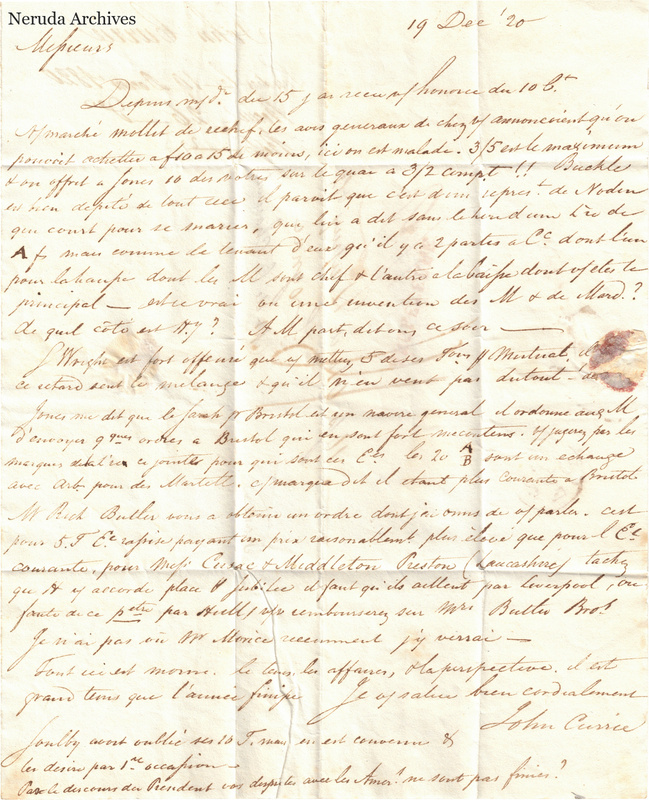 Neruda Archives
19 Dec '20
Messieurs
Depuis du 15 j'ai recu honorée du 10 Ct
marché mollet de rechef, les avis generaux de chez annoncoient qu'on
pouvoit achetter a f10 a 15 de moins, ici on est malade. 3/5 est le maximum
& on offrit a Jones 10 des notres sur le quai a 3/2 compt !! Buckle
est bien depité de tout ceci il paroit que c'est d'un represt. de Nodin
qui court pour se marier, qui lui a dit sans le d'une Lre de
A mais comme la tenant d'eux qu'il y a 2 partes a Cc dont l'un
pour la hausse dont les M sont chef & l'autre a la baisse dont etes le
principal — est ce vrai ou une invention des M & de Mard.?
de quel côte est A M part, dit on, ce soir —
J Wright est fort que mettiez 5 de ses Tons Mutual,
ce retard sent le melange & qu'il n'en veut pas du tout
Jones me dit que le Sarah pr Bristol est un navire general il ordonne aux M
d'envoyer qques ordres a Bristol qui en sont fort mecontens. jugerez par les
marques ci jointes pour qui sont ces Ees les 20 A/B sont un echange
avec pour des Martell. marge dit il etant plus courante a Bristol
Mr Rich Butler vous a obtenu un ordre dont j'ai omis de parler. c'est
pour 5. T Ee rafsie payant un prix raisonablement plus elevé que pour l'Ee
courante, pour Messrs Cusac & Middleton Preston (Lancashire) tachez
que accorde place il faut qu'ils aillent par Liverpool, ou
faute de ce par Hull, rembourserez sur Mrs Butler Bros
Je n'ai pas vu Mr Morice recemment j'y verrai —
Tout ici est morne. le tems, les affaires, & la perspective. il est
grand tems que l'année finisse Je salue bien cordialement
John Currie
Soulby avoit oublié ses 10 T. mais en est convenu &
les desire par 1re occasion —
Par le discours du President vos disputes avec les Amers ne sont pas finies?